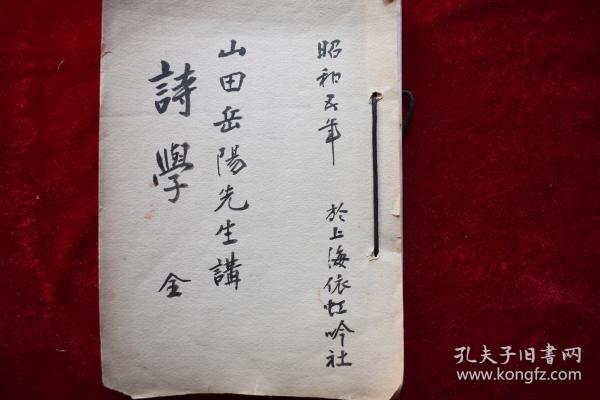 昭和五年 於上海依虹吟社
山田岳陽先生講
詩學 全
孔夫子旧书网
www.kongfz.com